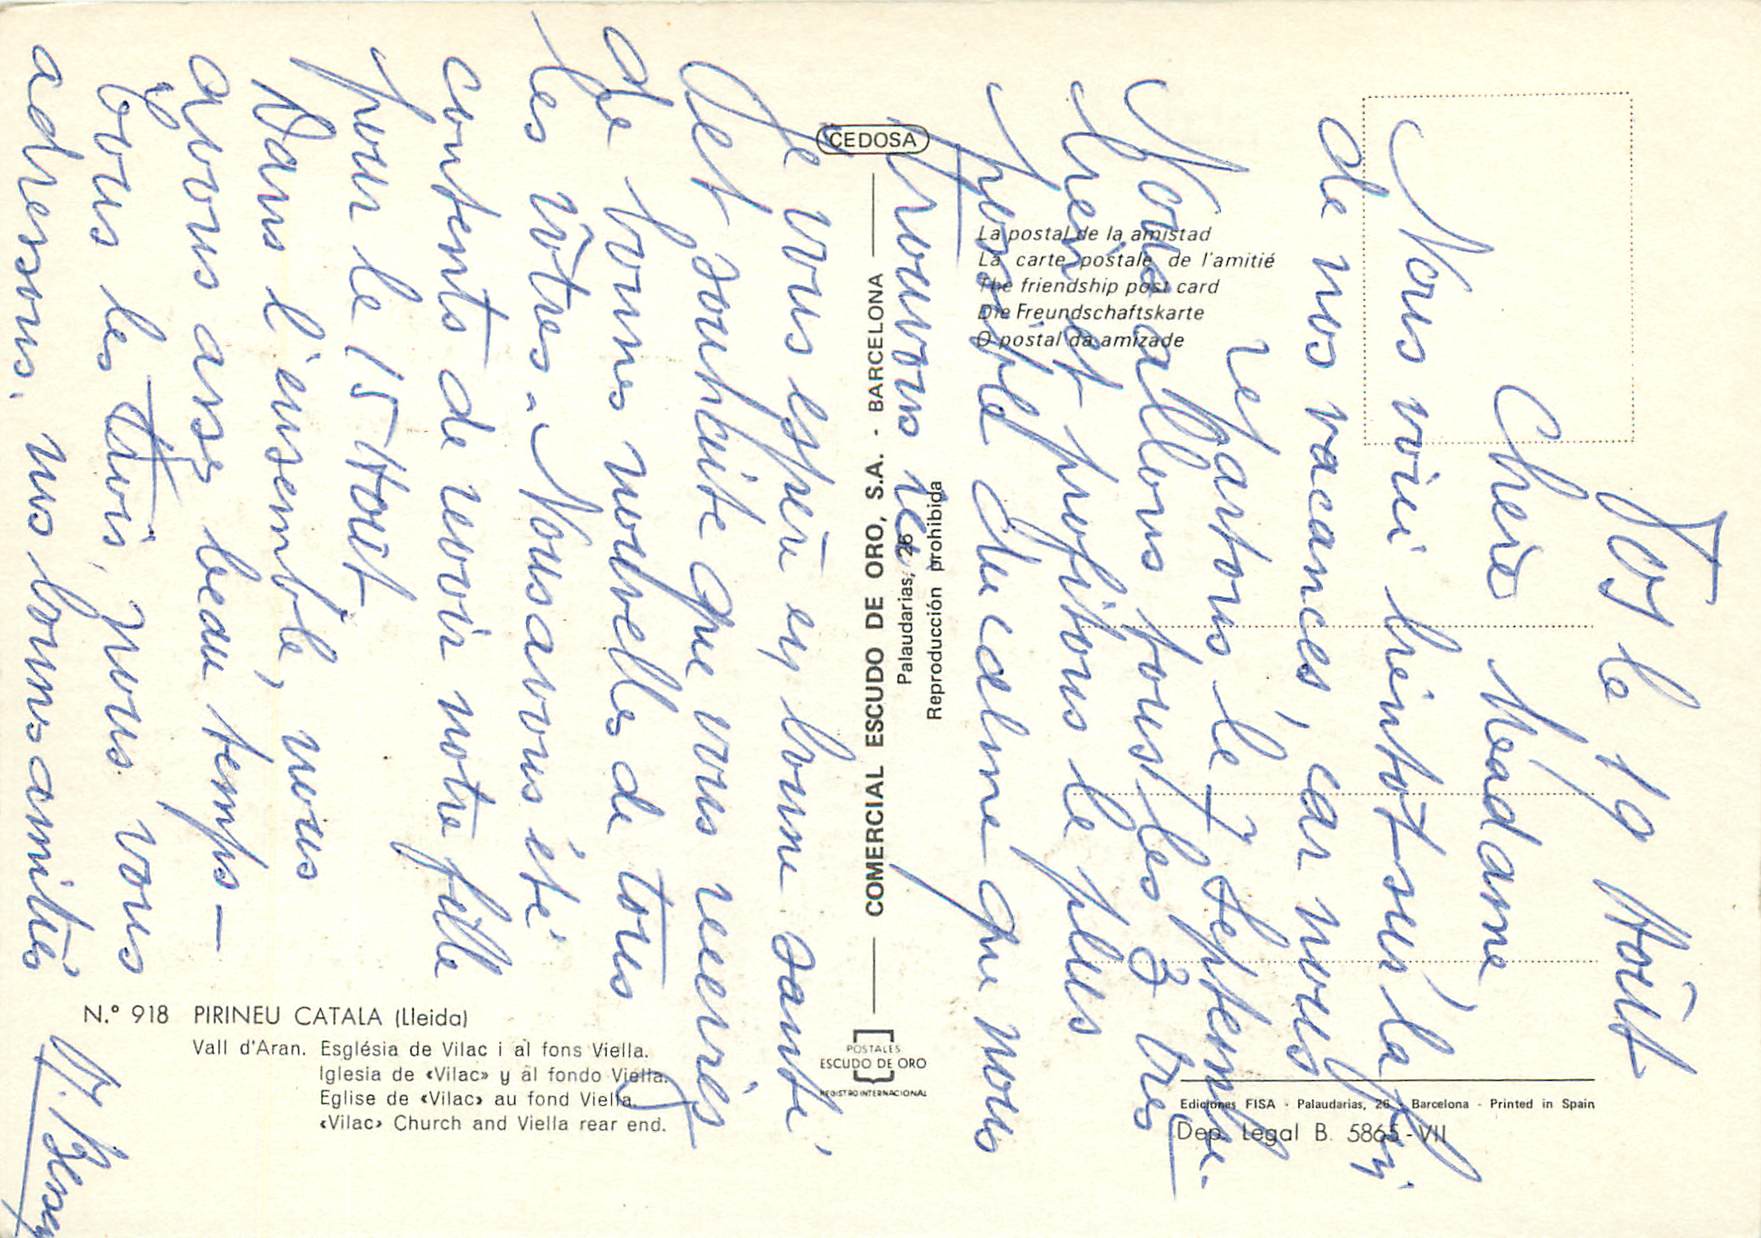 Vos le 19 Août
Chère Madame,
Nous voici bientôt sur la fin
de nos vacances, car nous
repartons le 7 Septembre.
Nous allons tous les 3 très
bien et profitons le plus
possible du calme que nous
trouvons ici.
Je vous espère en bonne santé
et souhaite que vous receviez
de bonnes nouvelles de tous
les vôtres. Nous avons été
contents de revoir notre fille
pour le 15 Août
Dans l'ensemble, nous
avons assez beau temps -
Tous les trois, nous vous
adressons, nos bonnes amitiés
CEDOSA
La postal de la amistad
La carte postale de l'amitié
The friendship post card
Die Freundschaftskarte
O postal da amizade
COMERCIAL ESCUDO DE ORO, S.A. - BARCELONA
Palaudarias, 26
Reproducción prohibida
POSTALES
ESCUDO DE ORO
REGISTRO INTERNACIONAL
N.º 918 PIRINEU CATALA (Lleida)
Vall d'Aran. Església de Vilac i al fons Viella.
Iglesia de «Vilac» y al fondo Viella.
Eglise de «Vilac» au fond Viella.
«Vilac» Church and Viella rear end.
Ediciones FISA - Palaudarias, 26 - Barcelona - Printed in Spain
Dep. Legal B. 5865-VII